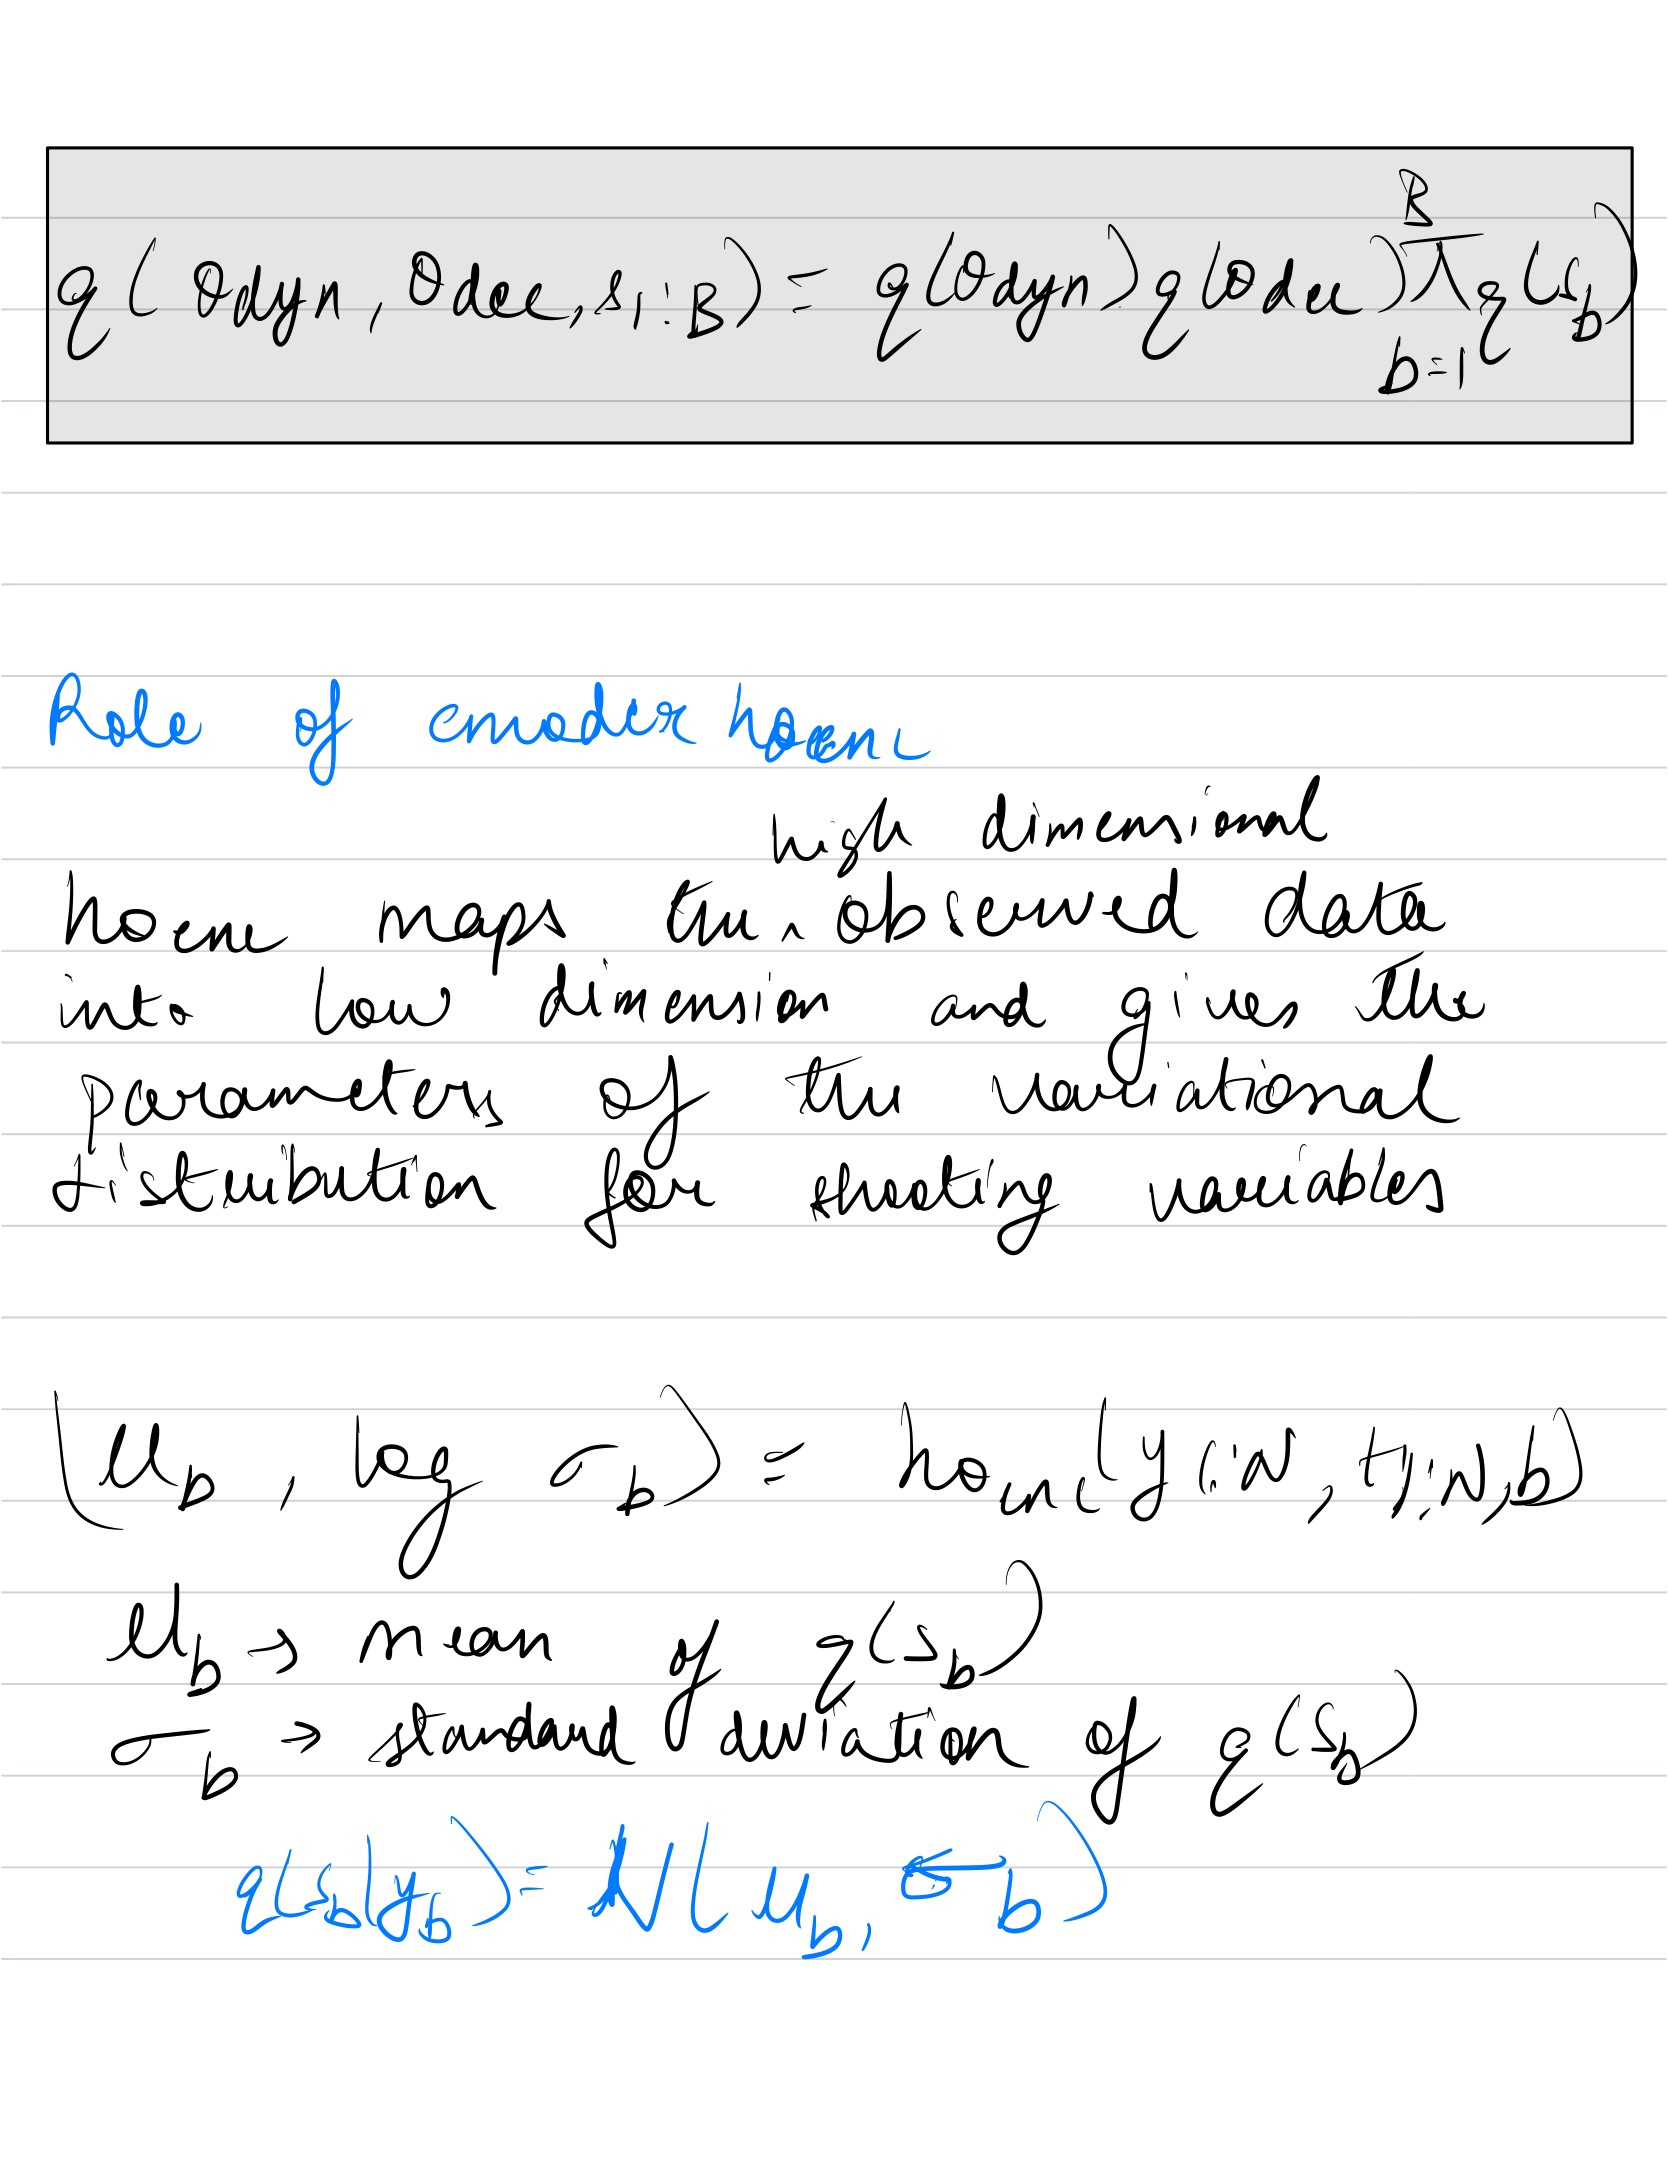 q(θdyn, θdec, s1:B) = q(θdyn) q(θdec) ∏_{b=1}^{B} q(s_b)
Role of encoder hθenc
high dimensional
hθenc maps the ‸ observed data
into low dimension and gives the
parameters of the variational
distribution for shooting variables
(μ_b, log σ_b) = hθenc(y1:N, t1:N, b)
μ_b → mean of q(s_b)
σ_b → standard deviation of q(s_b)
q(s_b|y_b) = N(μ_b, σ_b)